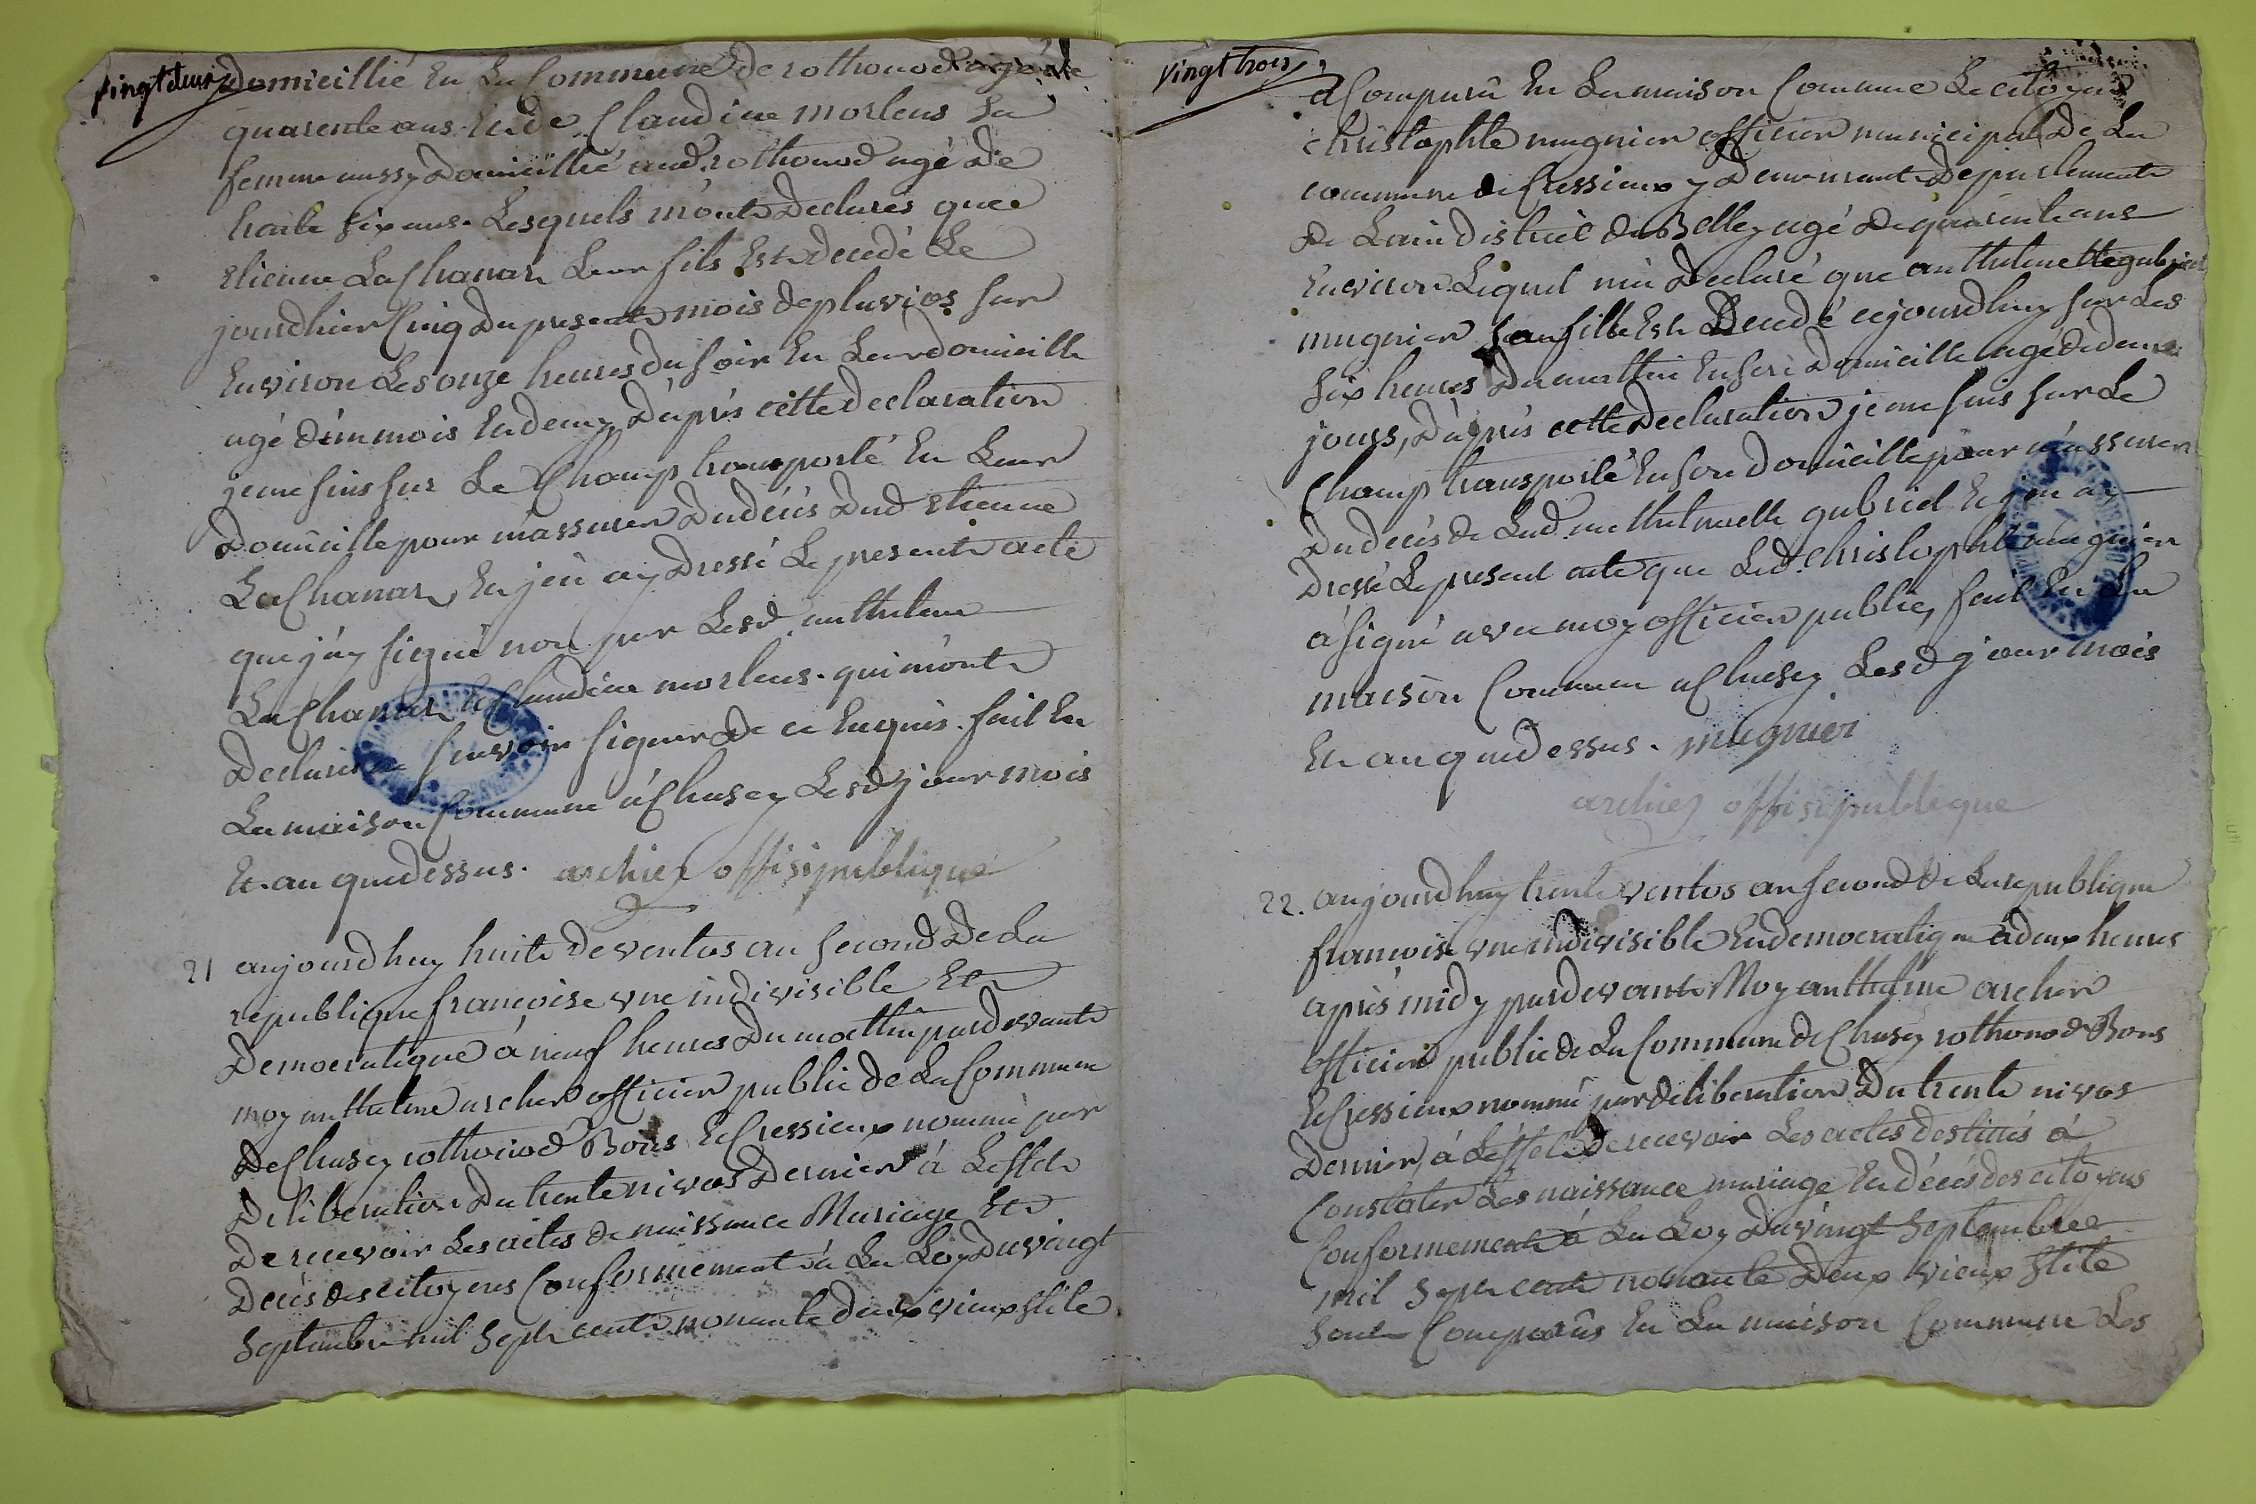 vingt deux
domicillié En La Commune de rothonod agé de
quarente ans Et de Claudine morleus Sa
femme aussy Domicillié aud. rothonod agé De
trante six ans. Lesquels m'ont Declarés que
etienne La Chanar Leur fils Est decedé Le
jourdhier Cinq Du present mois de pluvios sur
Environ Les onze heures du soir En Leur domicille
agé d'un mois Et demy D'aprés cette declaration
je me suis sur Le Champ transporté En Leur
Domicille pour m'assurer Du décés Dud etienne
La Chanar, Et j'en ay Dressé Le present acte
que j'ay signé non par Lesd. anthelme
La Chanar et Claudine morleus. qui m'ont
Declaré ne sçavoir signer De ce Enquis. fait En
La maison Commune á Chasey Lesd jour mois
Et an que dessus. archer offisi publique
21 aujourdhuy huit de ventos an second De La
republique françoise une indivisible Et
Democratique á neuf heures Du mattin pardevant
moy anthelme archer officier public de La Commune
De Chasey rothonod Bons Et Cressieux nommé par
Deliberation Du trente nivos Dernier á L'effet
De recevoir Les actes de naissance Mariage Et
Décés des citoyens Conformement á La Loy Du vingt
Septembre mil Sept cent nonante deux vieux stile
vingt trois
a Comparû En La maison Commune Le citoyen
christophle mugnier officier municipal De La
commune de Cressieux y Demeurant Departement
de L'ain district de Belley agé De quarente ans
Environ Lequel m'a Declaré que anthelmette gabriel
mugnier sa fille Est Decedé cejourdhuy sur Les
six heures Du mattin En son Domicille agé de deux
jours, D'aprés cette Declaration je me suis sur Le
Champ transporté En son Domicille pour m'assurer
Du decés de Lad. anthelmette gabriel Et j'en ay
Dressé Le present acte que Led. Christophle mugnier
á signé avec moy officier public, fait En La
maison Commune á Chasey Lesd jour mois
Et an que dessus. mugnier
archer offisi publique
22. aujourdhuy trente ventos an second de La republique
françoise une indivisible Et democratique á deux heures
aprés midy pardevant Moy anthelme archer
officier public de La Commune de Chasey rothonod Bons
Et Cressieux nommé par deliberation Du trente nivos
Dernier, á L'effet De recevoir Les actes destinés á
Constater Les naissance mariage Et décés des citoyens
Conformement á La Loy Du vingt Septembre
mil Sept cent nonante Deux vieux stile
Sont Comparûs En La maison Commune Les